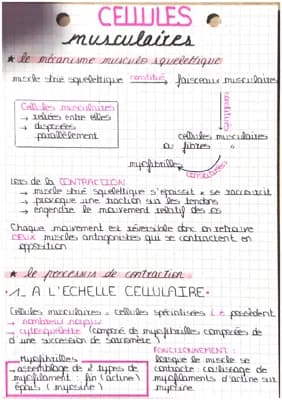 CELLULES
musculaires
★ le mécanisme musculo squelettique
muscle strié squelettique constitué faisceaux musculaires
constitués
Cellules musculaires
→ reliées entre elles
→ disposées
parallèlement
cellules musculaires
ou fibres "
myofibrilles constituées
Lors de la CONTRACTION
→ muscle strié squelettique s'épaissit & se raccourcit
→ provoque une traction sur les tendons
→ engendre le mouvement relatif des os
Chaque mouvement est réversible donc on retrouve
DEUX muscles antagonistes qui se contractent en
opposition
★ le processus de contraction
•1_ A L'ECHELLE CELLULAIRE.•
Cellules musculaires = cellules spécialisées i.e possèdent
→ nombreux noyaux
→ cytosquelette (composé de myofibrilles composées de
d'une succession de sarcomère)
Myofibrilles
→ assemblage de 2 types de
myofilament : fin (actine)
épais (myosine)
FONCTIONNEMENT :
lorsque le muscle se
contracte : coulissage de
myofilaments d'actine sur
myosine